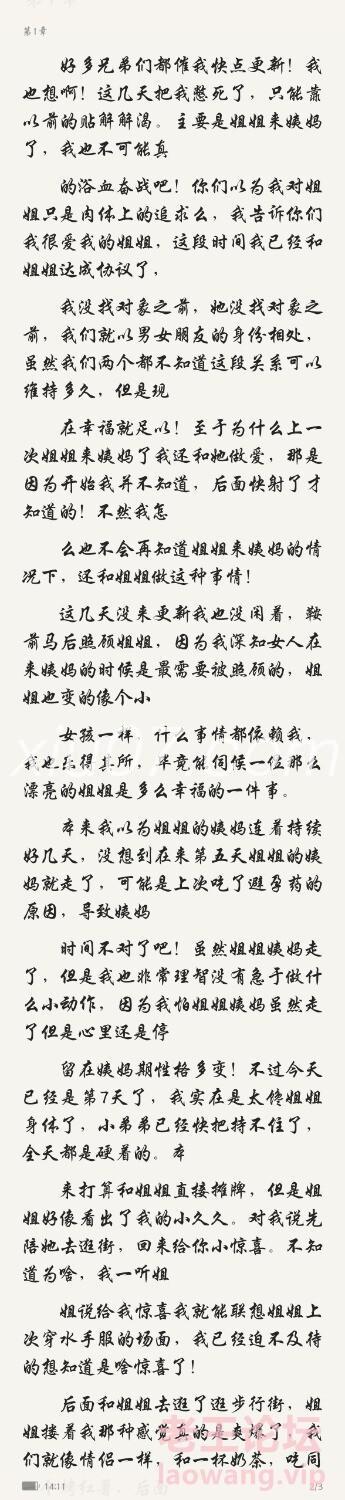 第1章
好多兄弟们都催我快点更新！我
也想啊！这几天把我憋死了，只能靠
以前的贴解解渴。主要是姐姐来姨妈
了，我也不可能真
的浴血奋战吧！你们以为我对姐
姐只是肉体上的追求么，我告诉你们
我很爱我的姐姐，这段时间我已经和
姐姐达成协议了，
我没找对象之前，她没找对象之
前，我们就以男女朋友的身份相处，
虽然我们两个都不知道这段关系可以
维持多久，但是现
在幸福就足以！至于为什么上一
次姐姐来姨妈了我还和她做爱，那是
因为开始我并不知道，后面快射了才
知道的！不然我怎
么也不会再知道姐姐来姨妈的情
况下，还和姐姐做这种事情！
这几天没来更新我也没闲着，鞍
前马后照顾姐姐，因为我深知女人在
来姨妈的时候是最需要被照顾的，姐
姐也变的像个小
女孩一样，什么事情都依赖我，
我也乐得其所，毕竟能伺候一位那么
漂亮的姐姐是多么幸福的一件事。
本来我以为姐姐的姨妈连着持续
好几天，没想到在来第五天姐姐的姨
妈就走了，可能是上次吃了避孕药的
原因，导致姨妈
时间不对了吧！虽然姐姐姨妈走
了，但是我也非常理智没有急于做什
么小动作，因为我怕姐姐姨妈虽然走
了但是心里还是停
留在姨妈期性格多变！不过今天
已经是第7天了，我实在是太馋姐姐
身体了，小弟弟已经快把持不住了，
全天都是硬着的。本
来打算和姐姐直接摊牌，但是姐
姐好像看出了我的小久久。对我说先
陪她去逛街，回来给你小惊喜。不知
道为啥，我一听姐
姐说给我惊喜我就能联想姐姐上
次穿水手服的场面，我已经迫不及待
的想知道是啥惊喜了！
后面和姐姐去逛了逛步行街，姐
姐搂着我那种感觉真的是爽爆了，我
们就像情侣一样，和一杯奶茶，吃同
14:11
2/3
老王论坛
laowang.vip